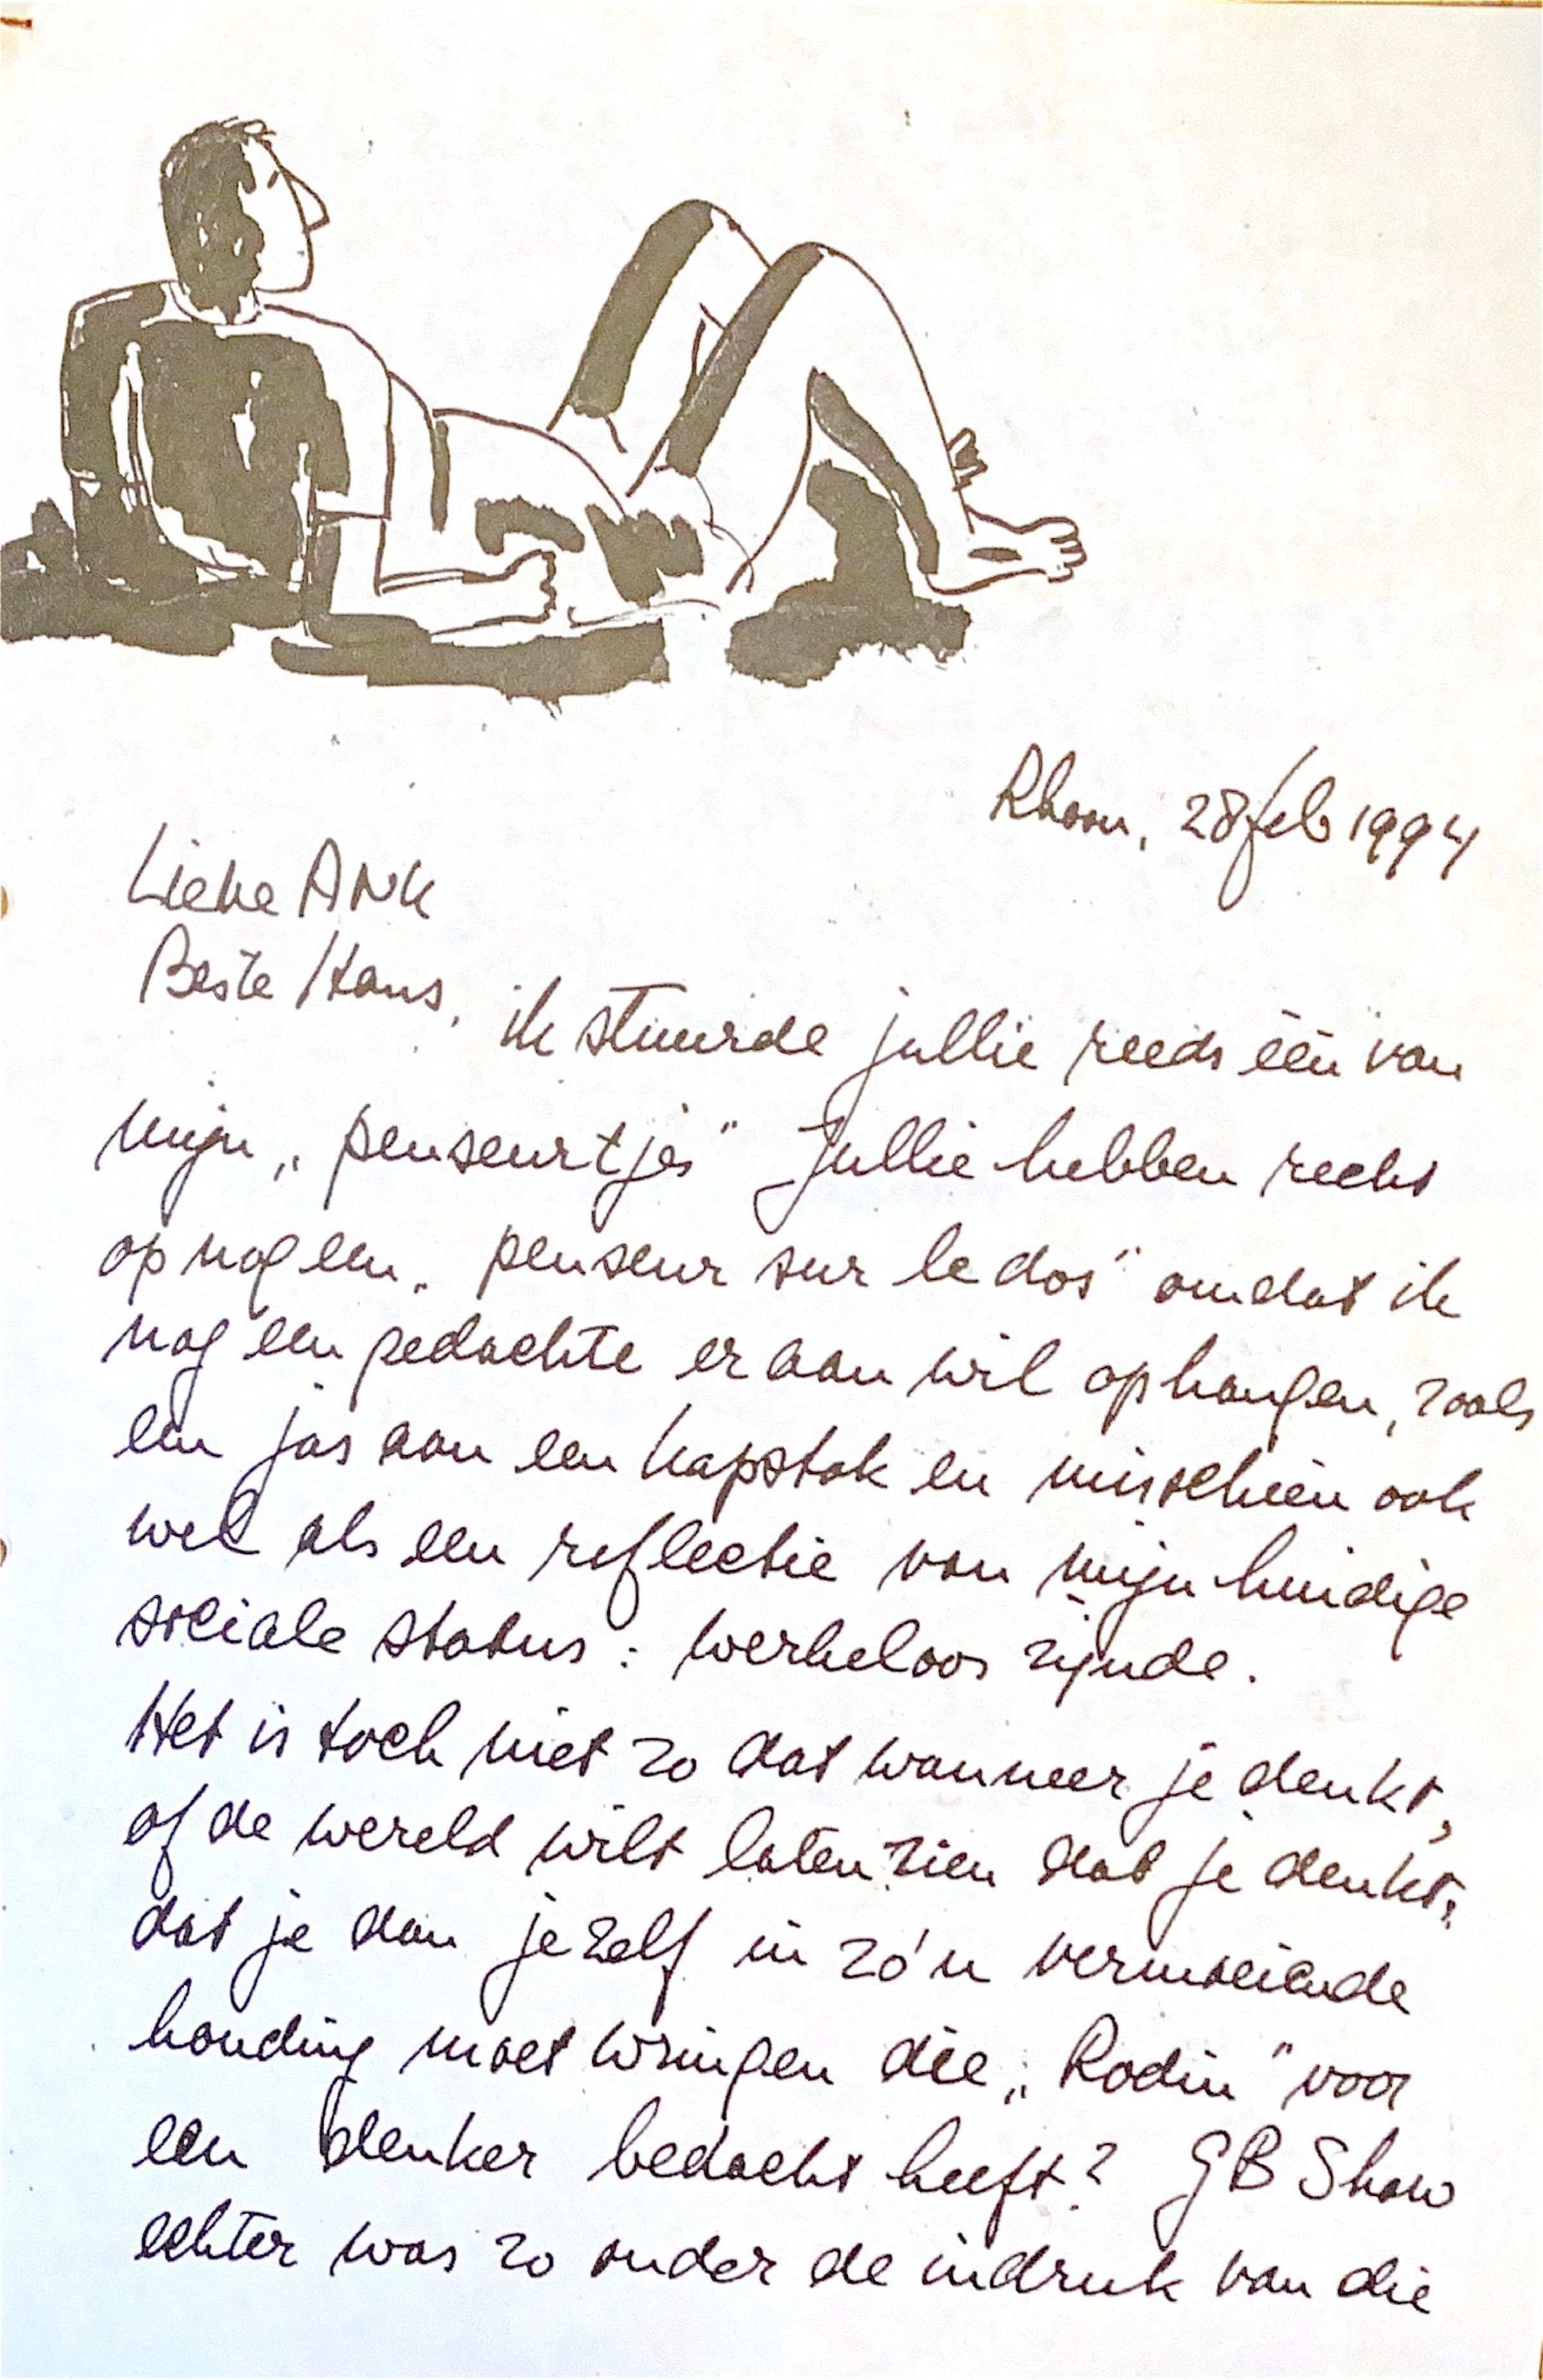 Rhoon, 28 feb 1994
Lieve Ank
Beste Hans,
ik stuurde jullie reeds één van
mijn „penseurtjes" Jullie hebben recht
op nog een „penseur sur le dos" omdat ik
nog een gedachte er aan wil ophangen, zoals
een jas aan een kapstok en misschien ook
wel als een reflectie van mijn huidige
sociale status : werkeloos zijnde.
Het is toch niet zo dat wanneer je denkt,
of de wereld wilt laten zien dat je denkt,
dat je dan jezelf in zo'n vermoeiende
houding moet wringen die „Rodin" voor
een denker bedacht heeft? GB Shaw
echter was zo onder de indruk van die